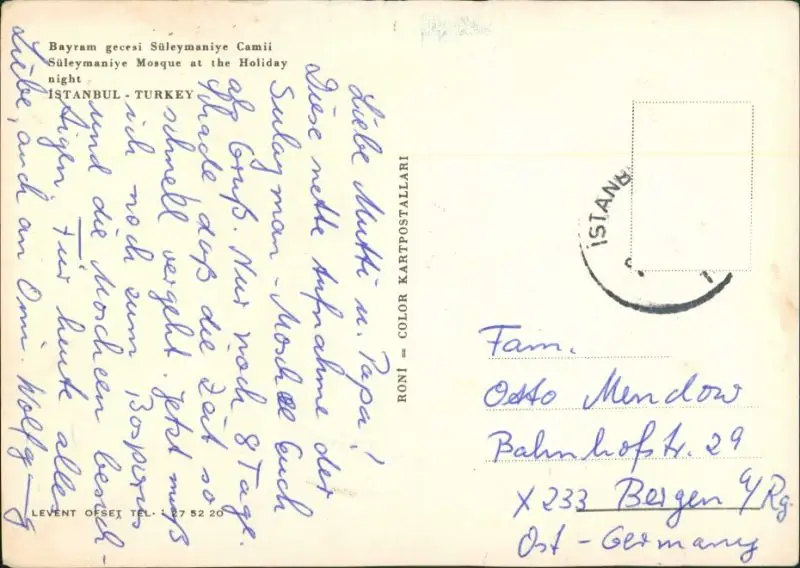 Bayram gecesi Süleymaniye Camii
Süleymaniye Mosque at the Holiday
night
İSTANBUL - TURKEY
Liebe Mutti u. Papa!
Diese nette Aufnahme der
Sulayman-Moschee Euch
als Gruß. Nur noch 8 Tage.
Schade, daß die Zeit so
schnell vergeht. Jetzt muß
ich noch zum Bosporus
und die Moscheen besich-
tigen. Für heute alles
Liebe, auch an Omi. Wolfg
LEVENT OFSET TEL. : 27 52 20
RONİ = COLOR KARTPOSTALLARI
İSTANB
Fam.
Otto Mendow
Bahnhofstr. 29
X 233 Bergen a/Rg.
Ost - Germany